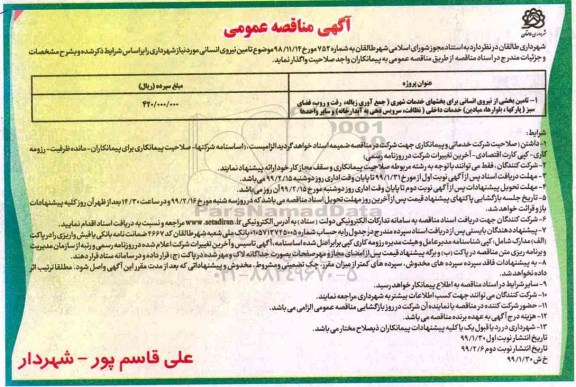 شهرداری طالقان
آگهی مناقصه عمومی
شهرداری طالقان در نظر دارد به استناد مجوز شورای اسلامی شهر طالقان به شماره ۷۵۲ مورخ ۹۸/۱۱/۱۲ موضوع تامین نیروی انسانی مورد نیاز شهرداری را براساس شرایط ذکر شده و بشرح مشخصات
و جزئیات مندرج در اسناد مناقصه از طریق مناقصه عمومی به پیمانکاران واجد صلاحیت واگذار نماید.
عنوان پروژه مبلغ سپرده (ریال)
۱- تامین بخشی از نیروی انسانی برای بخشهای خدمات شهری ( جمع آوری زباله، رفت و روب، فضای ۴۲۰/۰۰۰/۰۰۰
سبز ( پارکها، بلوارها، میادین) خدمات داخلی ( نظافت، سرویس دهی به آبدارخانه) و سایر واحدها
شرایط:
۱- داشتن: صلاحیت شرکت خدماتی و پیمانکاری جهت شرکت در مناقصه ضمیمه اسناد خواهد گردید الزامیست. (اساسنامه شرکتها- صلاحیت پیمانکاری برای پیمانکاران - مانده ظرفیت - رزومه
کاری - کپی کارت اقتصادی - آخرین تغییرات شرکت در روزنامه رسمی)
۲- شرکت کنندگان، فقط می توانند با توجه به رشته مربوطه صلاحیت پیمانکاری و سقف مجاز کار خود ارائه پیشنهاد نمایند.
۳- مهلت دریافت اسناد پس از آگهی نوبت اول از مورخ ۹۹/۱/۳۱ تا پایان وقت اداری روز دوشنبه ۹۹/۲/۱۵ می باشد.
۴- مهلت تحویل پیشنهادات پس از آگهی نوبت دوم تا پایان وقت اداری روز دوشنبه مورخ ۹۹/۲/۱۵ آن روز می باشد.
۵- تاریخ جلسه بازگشایی پاکتهای پیشنهاد قیمت پس از آخرین روز مهلت تحویل اسناد مناقصه می باشد که در روز سه شنبه مورخ ۹۹/۲/۱۶ و در ساعت ۱۴/۳۰ بعد از ظهر آن روز کلیه پیشنهادات
باز و قرائت خواهد شد.
۶- شرکت کنندگان جهت دریافت اسناد مناقصه به سامانه تدارکات الکترونیکی دولت (ستاد) به آدرس الکترونیکی www.setadiran.ir مراجعه و نسبت به دریافت اسناد اقدام نمایید.
۷- پیشنهاد دهندگان بایستی پس از دریافت اسناد سپرده مندرج در جدول را به حساب شماره بانک ملی شعبه شهر طالقان کد ۲۶۶۷ ضمانت نامه بانکی یا فیش واریزی را در پاکت
(الف) مدارک شامل: کپی شناسنامه مدیر عامل و هیئت مدیره رزومه کاری کپی برابر اصل شده اساسنامه، آگهی تاسیس و آخرین تغییرات شرکت اعلام شده در روزنامه رسمی و رتبه از سازمان مدیریت
و برنامه ریزی متن مناقصه در پاکت (ب) و برگه پیشنهاد قیمت پس از امضای مجاز و مهر صفحات بصورت جداگانه لاک و مهر شده در پاکت (ج) قرار داده و در سامانه ستاد قرار دهند.
۸- به پیشنهادات فاقد سپرده سپرده های مخدوش، سپرده های کمتر از میزان مقرر، چک تضمینی و مشروط، مخدوش و پیشنهاداتی که بعد از مدت مقرر این آگهی واصل شود، مطلقا ترتیب اثر
داده نخواهد شد.
۹- سایر شرایط در اسناد مناقصه به اطلاع پیمانکار خواهد رسید.
۱۰- شرکت کنندگان می توانند جهت کسب اطلاعات بیشتر به شهرداری مراجعه نمایند.
۱۱- حضور شرکت کننده در مناقصه یا نماینده آن شرکت در روز بازگشایی مناقصه عمومی الزامی می باشد.
۱۲- هزینه درج آگهی به عهده برنده مناقصه می باشد.
۱۳- شهرداری در رد یا قبول یک یا کلیه پیشنهادات پیمانکاران ذیصلاح مختار می باشد.
تاریخ انتشار نوبت اول ۹۹/۱/۳۰
تاریخ انتشار نوبت دوم ۹۹/۲/۶
خ ش ۹۹/۱/۳۰
علی قاسم پور - شهردار
ParsNamadData
۰۲۱-۸۸۳۴۹۶۷۰-۵